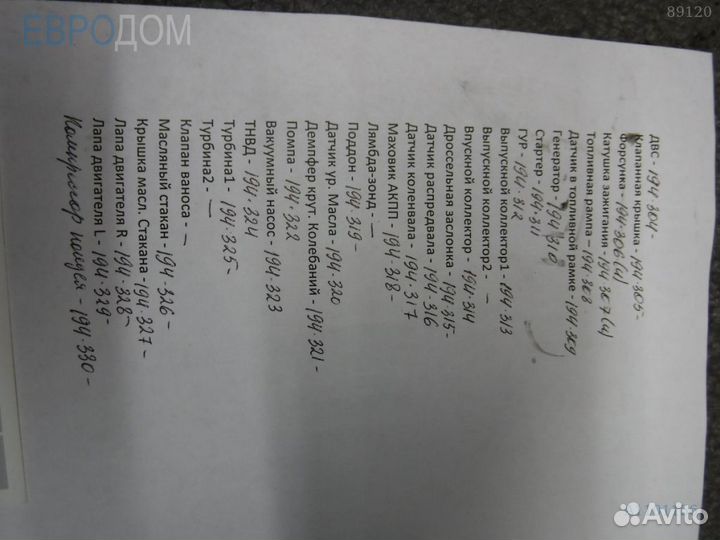 89120
ЕВРОДОМ
ДВС - 194.304 -
Клапанная крышка - 194.305 -
Форсунка - 194.306(4)
Катушка зажигания - 194.307(4)
Топливная рампа - 194.308
Датчик в топливной рамке - 194.309
Генератор - 194.310
Стартер - 194.311
ГУР - 194.312
Выпускной коллектор1 - 194.313
Выпускной коллектор2 - —
Впускной коллектор - 194.314
Дроссельная заслонка - 194.315 -
Датчик распредвала - 194.316
Датчик коленвала - 194.317
Маховик АКПП - 194.318 -
Лямбда-зонд - —
Поддон - 194.319 -
Датчик ур. Масла - 194.320
Демпфер крут. Колебаний - 194.321 -
Помпа - 194.322
Вакуумный насос - 194.323
ТНВД - 194.324
Турбина1 - 194.325 -
Турбина2 - —
Клапан ваноса - —
Масляный стакан - 194.326 -
Крышка масл. Стакана - 194.327 -
Лапа двигателя R - 194.328 -
Лапа двигателя L - 194.329 -
194.330 -
Avito